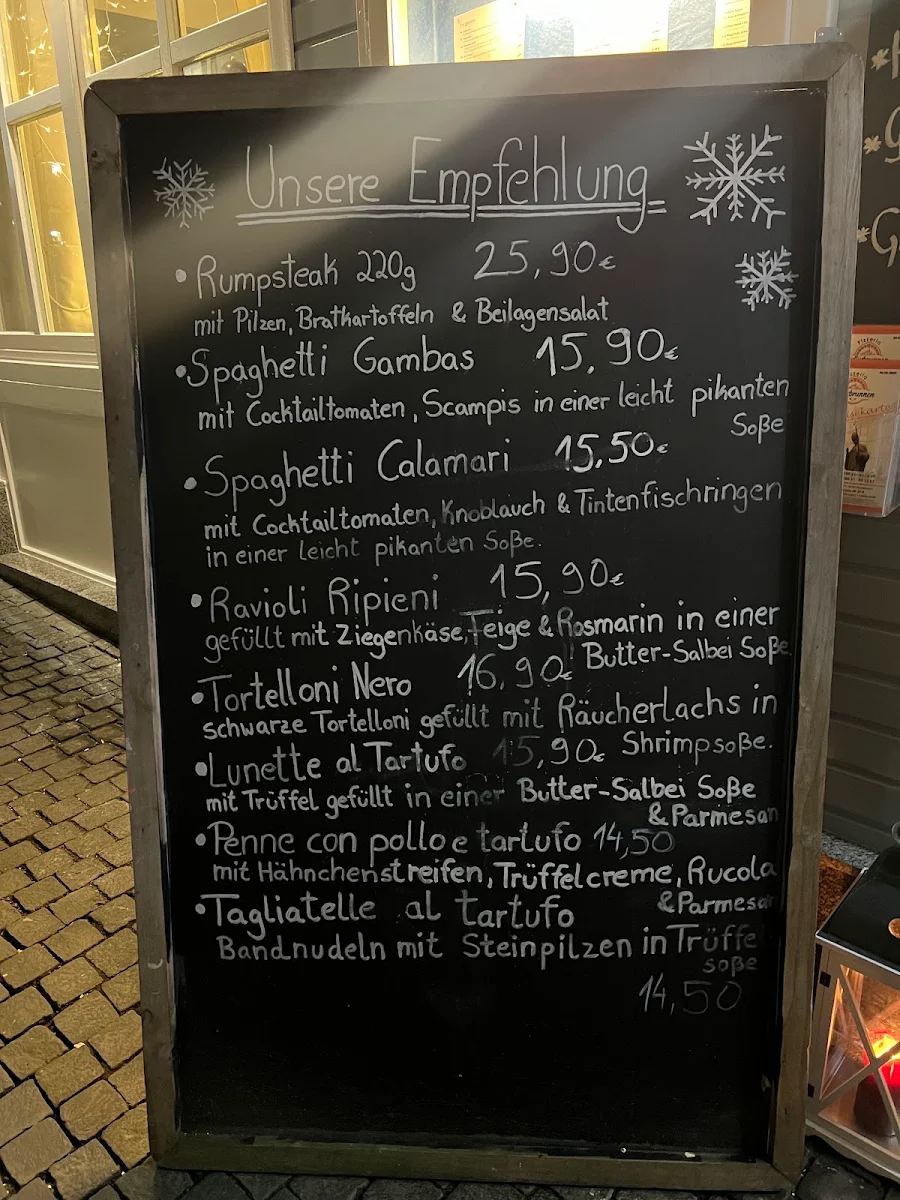 Unsere Empfehlung
• Rumpsteak 220g 25,90€
mit Pilzen, Bratkartoffeln & Beilagensalat
• Spaghetti Gambas 15,90€
mit Cocktailtomaten, Scampis in einer leicht pikanten
Soße
• Spaghetti Calamari 15,50€
mit Cocktailtomaten, Knoblauch & Tintenfischringen
in einer leicht pikanten Soße.
• Ravioli Ripieni 15,90€
gefüllt mit Ziegenkäse, Feige & Rosmarin in einer
Butter-Salbei Soße
• Tortelloni Nero 16,90€
schwarze Tortelloni gefüllt mit Räucherlachs in
Shrimpsoße.
• Lunette al Tartufo 15,90€
mit Trüffel gefüllt in einer Butter-Salbei Soße
& Parmesan
• Penne con pollo e tartufo 14,50
mit Hähnchenstreifen, Trüffelcreme, Rucola
& Parmesan
• Tagliatelle al tartufo
Bandnudeln mit Steinpilzen in Trüffe
soße
14,50
Pizzeria